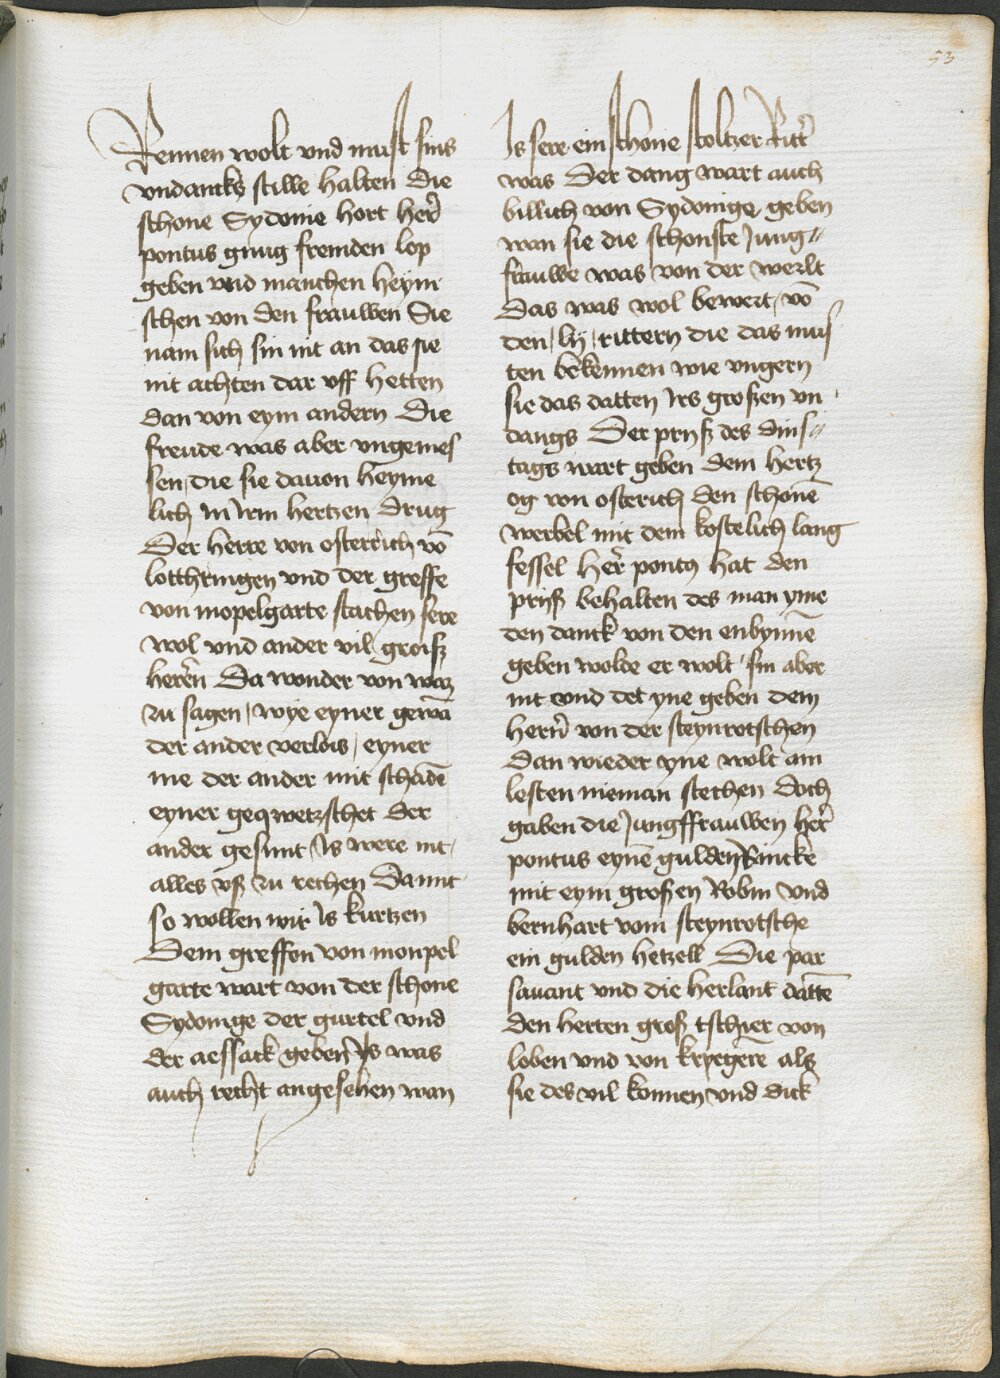 53
Rennen wolt vnd must sins
vndancks stille halten Die
schone Sydonie hort her̄
pontus gnug fremden lop
geben vnd manchen heym
schen von den frauwen Sie
nam sich sin nit an das sie
nit achten dar vff hetten
dan von eym andern Die
freude was aber vngemes
sen die sie dauon heyme
lich in irm hertzen drug
Der herre von osterrich vō
lotthringen vnd der greffe
von mopelgarte stachen sere
wol vnd ander vil groisz
herērn Da wonder von waz
zu sagen / wye eyner gewā
der ander verlois / eyner
me der ander mit schadē
eyner geqwetzschet der
ander gesunt / Is were nit
alles vß zu rechen Damit
so wollen wir Is kurtzen
Dem greffen von monpel
garte wart von der schone
Sydonige der gurtel vnd
der aessack geben Is was
auch recht angesehen wan
Is sere ein schone stoltzer Ritt̄
was Der dang wart auch
billich von Sydonige geben
wan sie die schonste Jung〃
frauwe was von der werlt
Das was wol bewert / vō
den / lij / rittern die das mus
ten bekennen wie vngern
sie das datten Irs großen vn
dangs Der prijß des dins〃
tags wart geben dem hertz
og von osterich den schonē
werbel mit dem kostelich lang
fessel her̄ pontus hat den
prijß behalten des man yme
den danck von den enbynnē
geben wolde er wolt sin aber
nit vnd det yne geben dem
hern̄ von der steynrotschen
Dan wieder yne wolt am
lesten nieman stechen Doch
gaben die Jungffrauwen her̄
pontus eynē gulden Rincke
mit eym großen Robin vnd
bernhart vom steynrotsche
ein gulden hetzell Die par
sauant vnd die herlant dattē
den herren groß tschier von
loben vnd von kryegere als
sie des vil konnen vnd dick